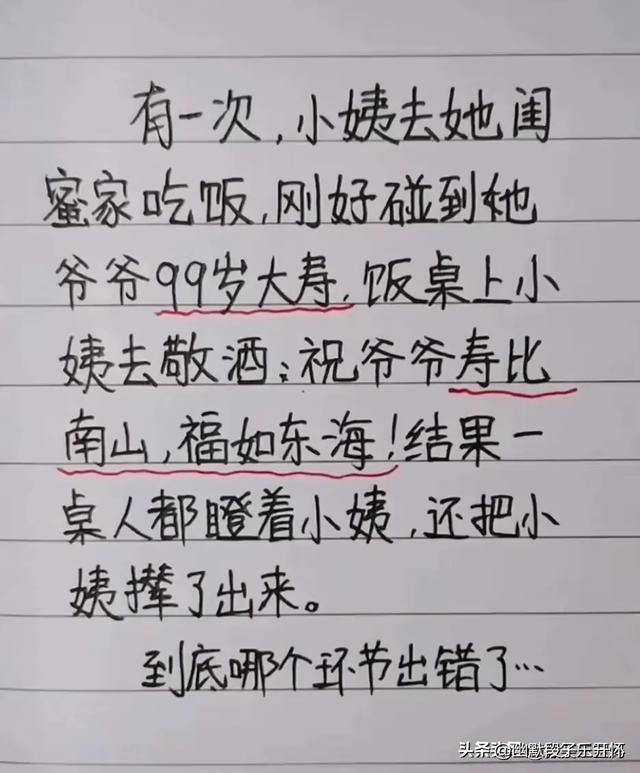 有一次,小姨去她闺
蜜家吃饭,刚好碰到她
爷爷99岁大寿,饭桌上小
姨去敬酒:祝爷爷寿比
南山,福如东海!结果一
桌人都瞪着小姨,还把小
姨撵了出来。
到底哪个环节出错了…
头条 @幽默段子乐开怀